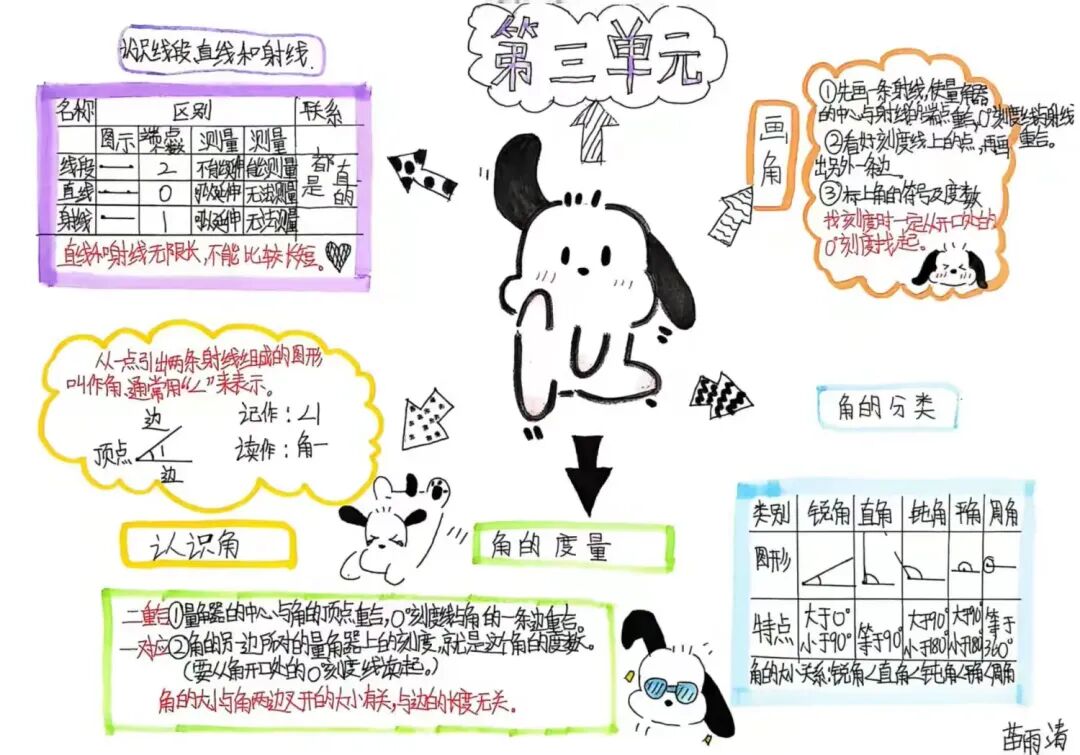 第三单元
认识线段、直线和射线.
名称 区别 联系
图示 端点数 测量 测量
线段 2 不能延伸 能测量 都是直的
直线 0 可以延伸 无法测量
射线 1 可以延伸 无法测量
直线和射线无限长,不能比较长短。
画角
①先画一条射线,使量角器
的中心与射线的端点重合,0°刻度线与射线
重合。
②看好刻度线上的点,再画
出另外一条边。
③标上角的符号及度数
找刻度时一定从开口处的
0°刻度找起。
从一点引出两条射线组成的图形
叫作角,通常用“∠”来表示。
边
顶点
1
边
记作:∠1
读作:角一
认识角
角的度量
二重合①量角器的中心与角的顶点重合,0°刻度线与角的一条边重合。
一对应②角的另一边所对的量角器上的刻度,就是这个角的度数。
(要从角开口处的0°刻度线读起。)
角的大小与角两边叉开的大小有关,与边的长度无关。
角的分类
类别 锐角 直角 钝角 平角 周角
图形
特点 大于0°小于90° 等于90° 大于90°小于180° 大于90°小于180° 等于360°
角的大小关系:锐角<直角<钝角<平角<周角
苗雨涛